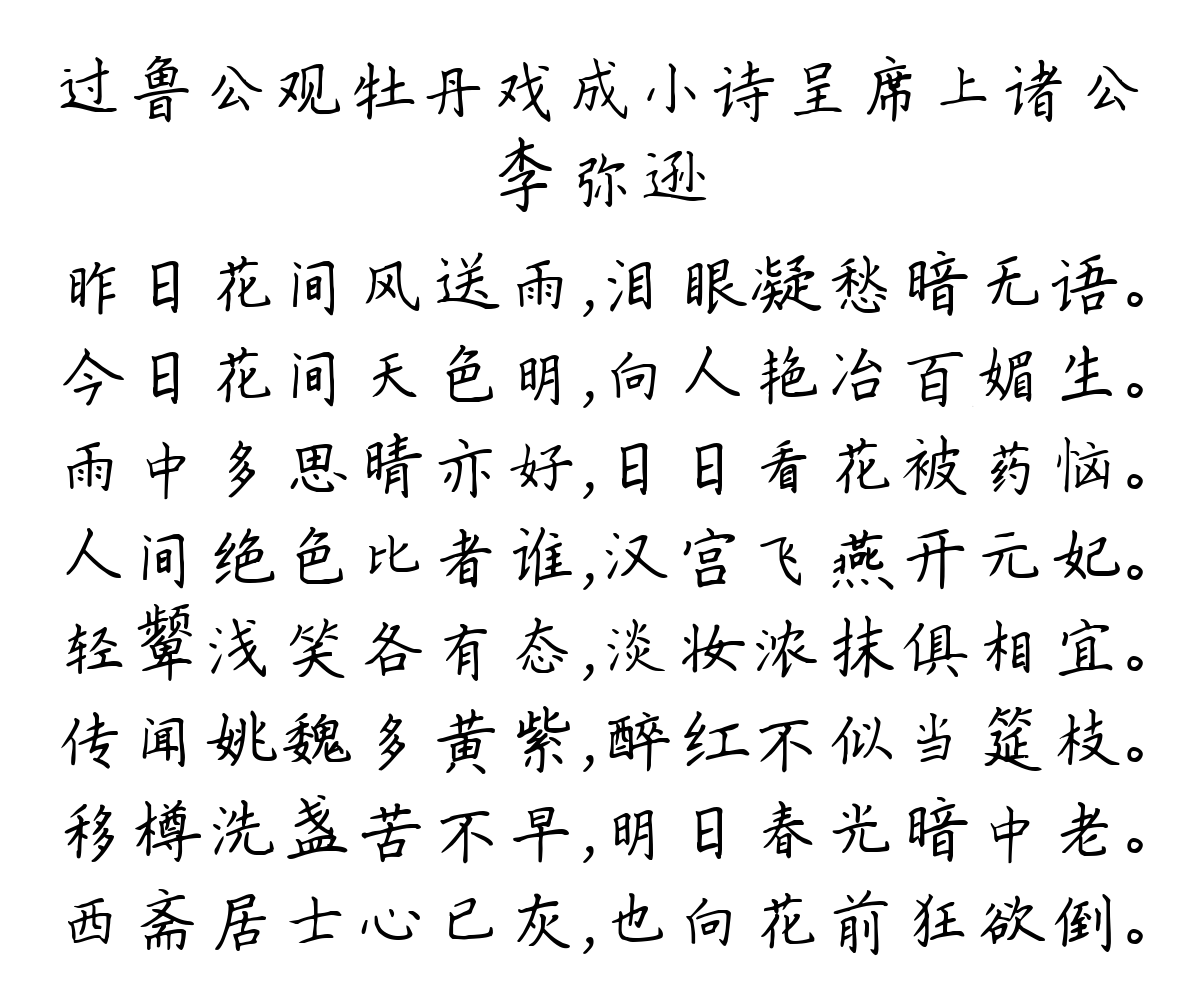 过鲁公观牡丹戏成小诗呈席上诸公
李弥逊
昨日花间风送雨,泪眼凝愁暗无语。
今日花间天色明,向人艳冶百媚生。
雨中多思晴亦好,日日看花被药恼。
人间绝色比者谁,汉宫飞燕开元妃。
轻颦浅笑各有态,淡妆浓抹俱相宜。
传闻姚魏多黄紫,醉红不似当筵枝。
移樽洗盏苦不早,明日春光暗中老。
西斋居士心已灰,也向花前狂欲倒。